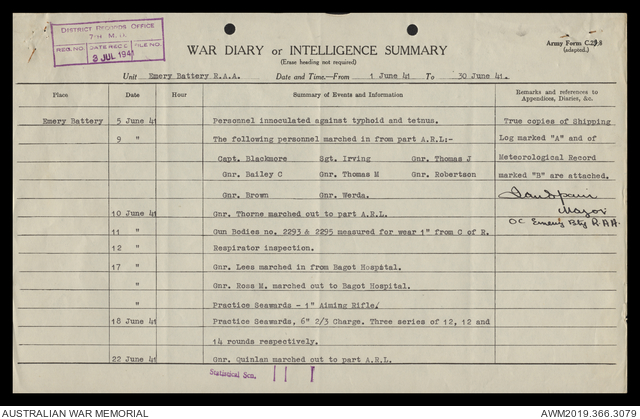 DISTRICT RECORDS OFFICE
7TH M.D.
REG. NO. DATE REC'D FILE NO.
3 JUL 1941
WAR DIARY or INTELLIGENCE SUMMARY
(Erase heading not required)
Army Form C.2118
(adapted.)
Unit Emery Battery R.A.A. Date and Time—From 1 June 41 To 30 June 41.
Place Date Hour Summary of Events and Information Remarks and references to
Appendices, Diaries, &c.
Emery Battery 5 June 41 Personnel innoculated against typhoid and tetnus. True copies of Shipping
9 " The following personnel marched in from part A.R.L:- Log marked "A" and of
Capt. Blackmore Sgt. Irving Gnr. Thomas J Meteorological Record
Gnr. Bailey C Gnr. Thomas M Gnr. Robertson marked "B" are attached.
Gnr. Brown Gnr. Werda.
Major
10 June 41 Gnr. Thorne marched out to part A.R.L.
OC Emery Bty R.A.A.
11 " Gun Bodies no. 2293 & 2295 measured for wear 1" from C of R.
12 " Respirator inspection.
17 " Gnr. Lees marched in from Bagot Hospital.
" Gnr. Ross M. marched out to Bagot Hospital.
" Practice Seawards - 1" Aiming Rifle.
18 June 41 Practice Seawards, 6" 2/3 Charge. Three series of 12, 12 and
14 rounds respectively.
22 June 41 Gnr. Quinlan marched out to part A.R.L.
Statistical Scn.
AUSTRALIAN WAR MEMORIAL AWM2019.366.3079